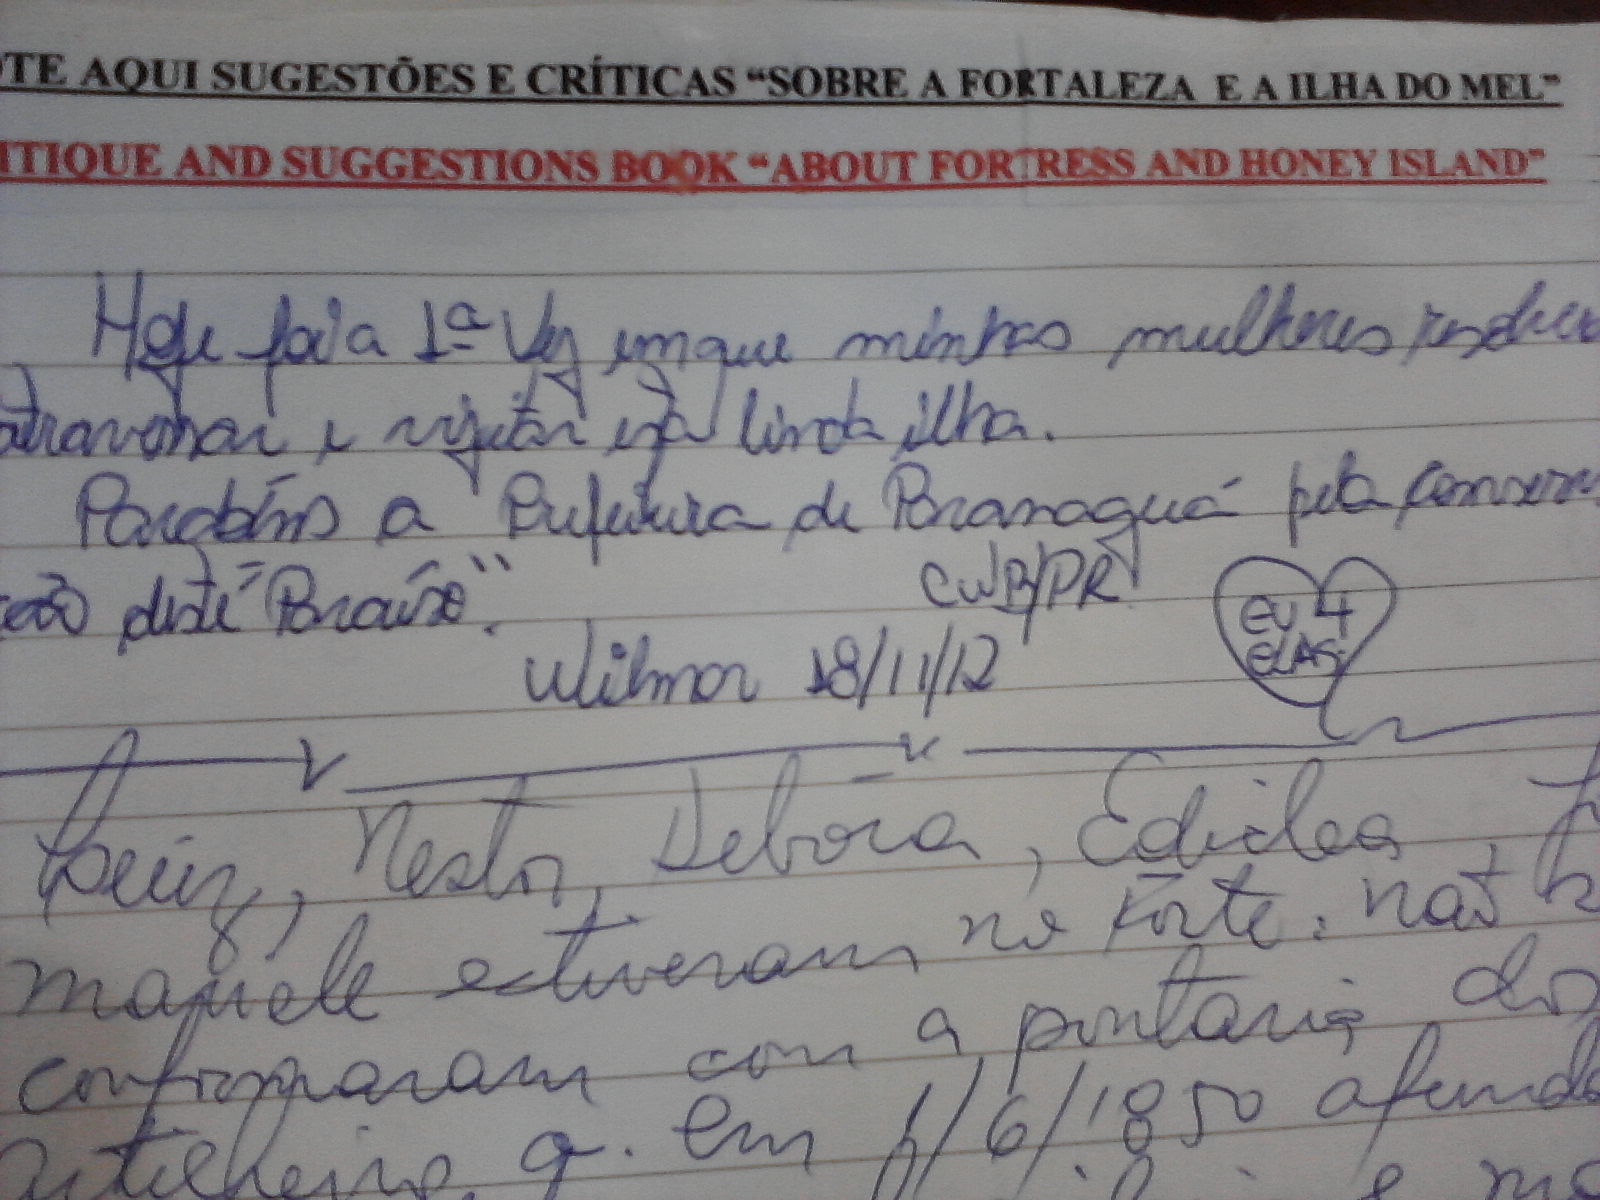 OTE AQUI SUGESTÕES E CRÍTICAS “SOBRE A FORTALEZA E A ILHA DO MEL”
ITIQUE AND SUGGESTIONS BOOK “ABOUT FORTRESS AND HONEY ISLAND”
Hoje foi a 1ª Vez em que minhas mulheres
atravessar e visitar esta linda ilha.
Parabéns a Prefeitura de Paranaguá pela conserva
ção deste "Paraíso".
CWB/PR
EU 4
ELAS
Wilmar 18/11/12
Luiz, Nestor, Debora, Ediclea,
estiveram no Forte. não
com a pontaria dos
artilheiros q. em 1/6/1850 afunda